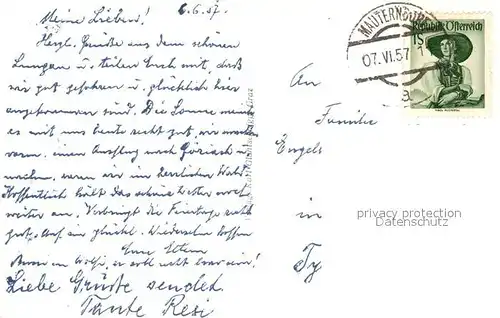 Meine Lieben! 6.6.57.
Herzl. Grüße aus dem schönen
Lungau u. teilen Euch mit, daß
wir gut gefahren u. glücklich hier
angekommen sind. Die Sonne meint
es mit uns heute recht gut, wir
einen Ausflug nach
machen, waren wir im herrlichen Wald.
Hoffentlich hält das schöne Wetter noch
weiter an. Verbringt die Feiertage recht
gut. Auf ein glückl. Wiedersehn hoffen
Eure Eltern
er soll recht brav sein!
Liebe Grüße sendet
Tante Resi
An
Familie
Engels
in
Ty
MAUTERNDORF
07.VI.57
Republik Österreich
privacy protection
Datenschutz